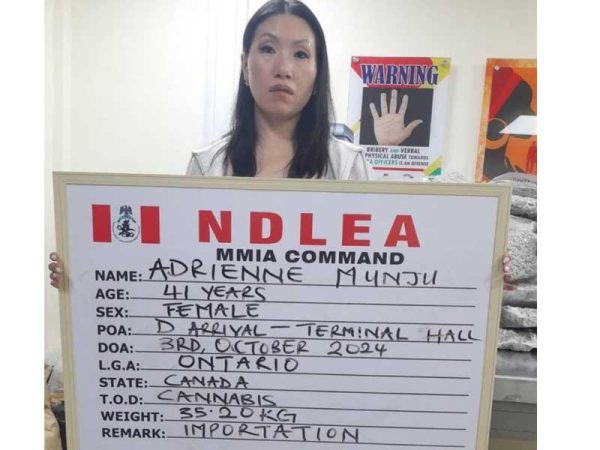 WARNING
BRIBERY AND VERBAL
PHYSICAL ABUSE TOWARDS
OFFICERS IS AN OFFENSE
NDLEA
MMIA COMMAND
NAME: ADRIENNE MUNJU
AGE: 41 YEARS
SEX: FEMALE
POA: D ARRIVAL - TERMINAL HALL
DOA: 3RD, OCTOBER 2024
L.G.A: ONTARIO
STATE: CANADA
T.O.D: CANNABIS
WEIGHT: 35.20KG
REMARK: IMPORTATION